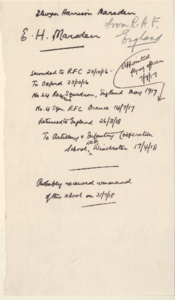 Elwyn Harrison Marsden
from R.A.F.
England
E. H. Marsden
Appointed
flying officer
Seconded to R.F.C 23/10/16
To Oxford 23/10/16
No. 64 Squadron, England May 1917
No. 4 Sqn. R.F.C France 14/7/17
Returned to England 26/2/18
To Artillery & Infantry Cooperation
School, Winchester 17/4/18
Probably received command
of this school on